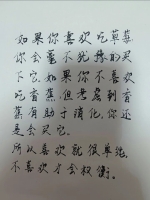 如果你喜欢吃草莓
你会毫不犹豫的买
下它,如果你不喜欢
吃香蕉,但考虑到香
蕉有助于消化,你还
是会买它。
所以喜欢就很单纯,
不喜欢才会权衡。